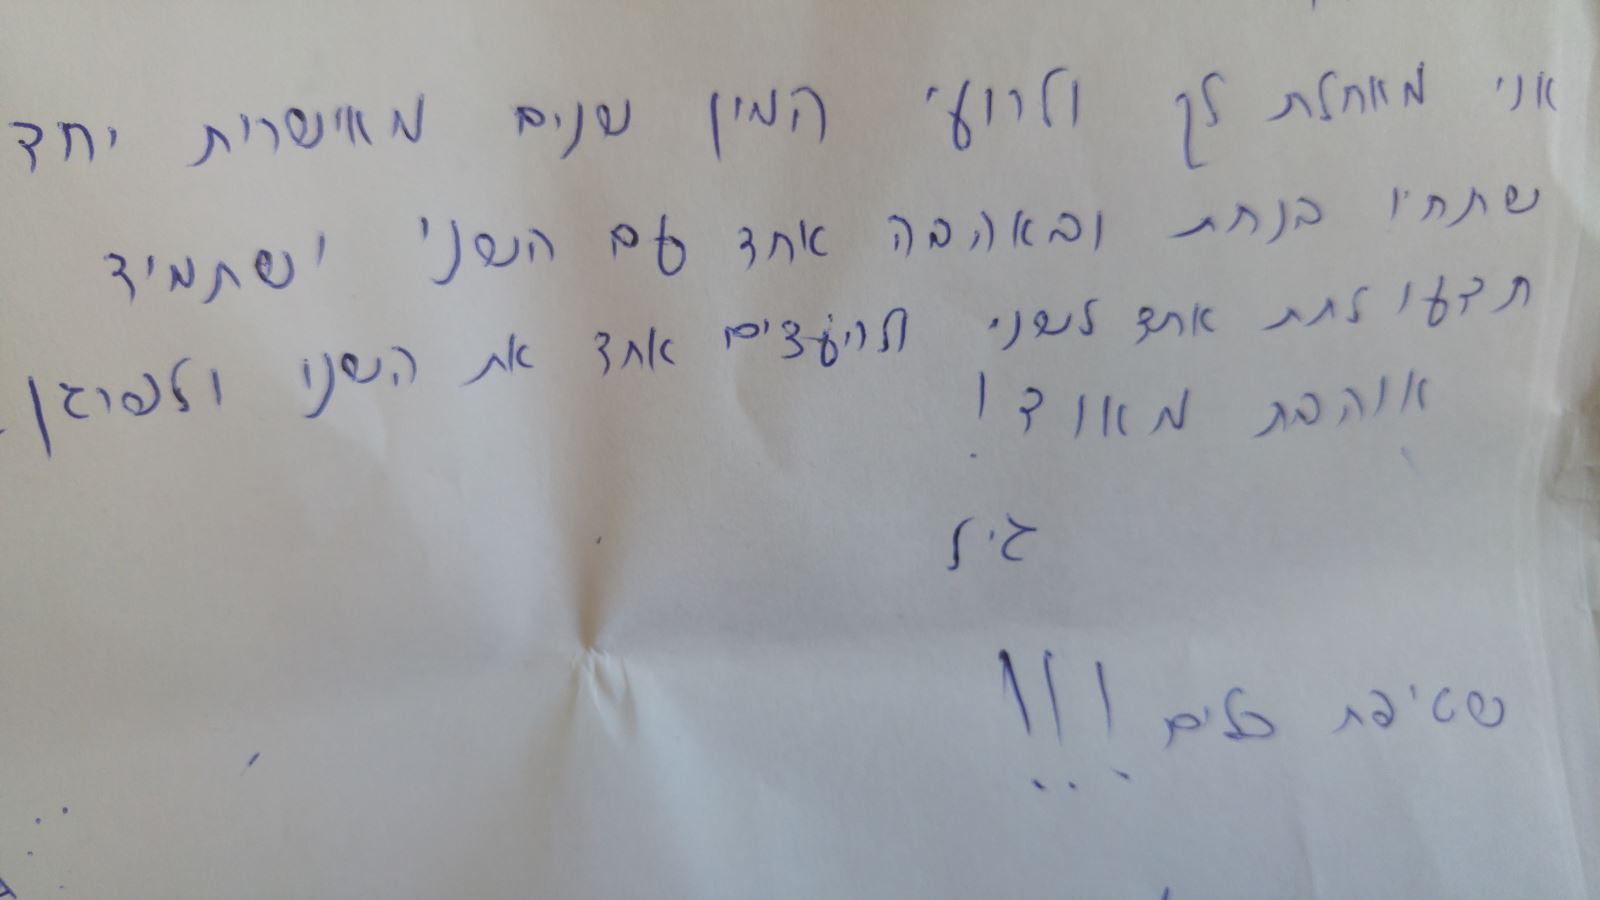 אני מאחלת לך ולרועי המון שנים מאושרות יחד
שתחיו בנחת ובאהבה אחד עם השני ושתמיד
תדעו לתת אחד לשני ולהעצים אחד את השני ולפרגן.
אוהבת מאוד!
גיל
שטיפת כלים!!!